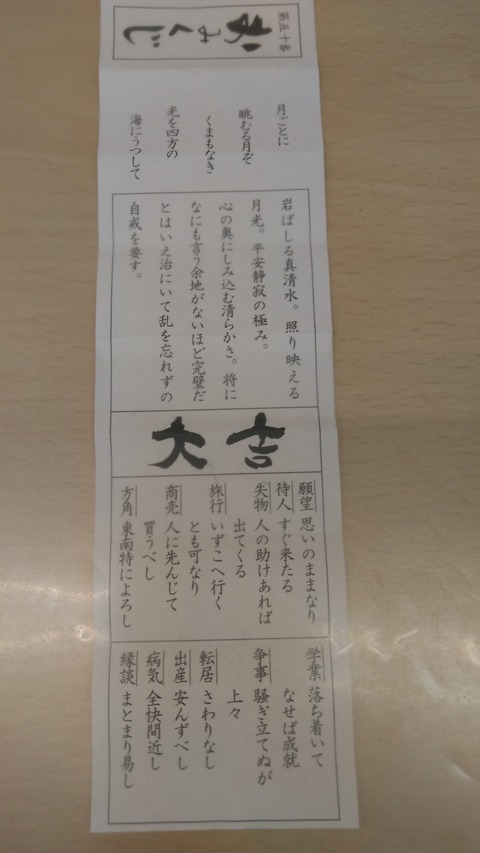 第五十番
おみくじ
月ごとに
眺むる月ぞ
くまもなき
光を四方の
海にうつして
岩ばしる真清水。照り映える
月光。平安静寂の極み。
心の奥にしみ込む清らかさ。将に
なにも言う余地がないほど完璧だ
とはいえ治にいて乱を忘れずの
自戒を要す。
大吉
願望 思いのままなり
待人 すぐ来たる
失物 人の助けあれば
出てくる
旅行 いずこへ行く
とも可なり
商売 人に先んじて
買うべし
方角 東南特によろし
学業 落ち着いて
なせば成就
争事 騒ぎ立てぬが
上々
転居 さわりなし
出産 安んずべし
病気 全快間近し
縁談 まとまり易し